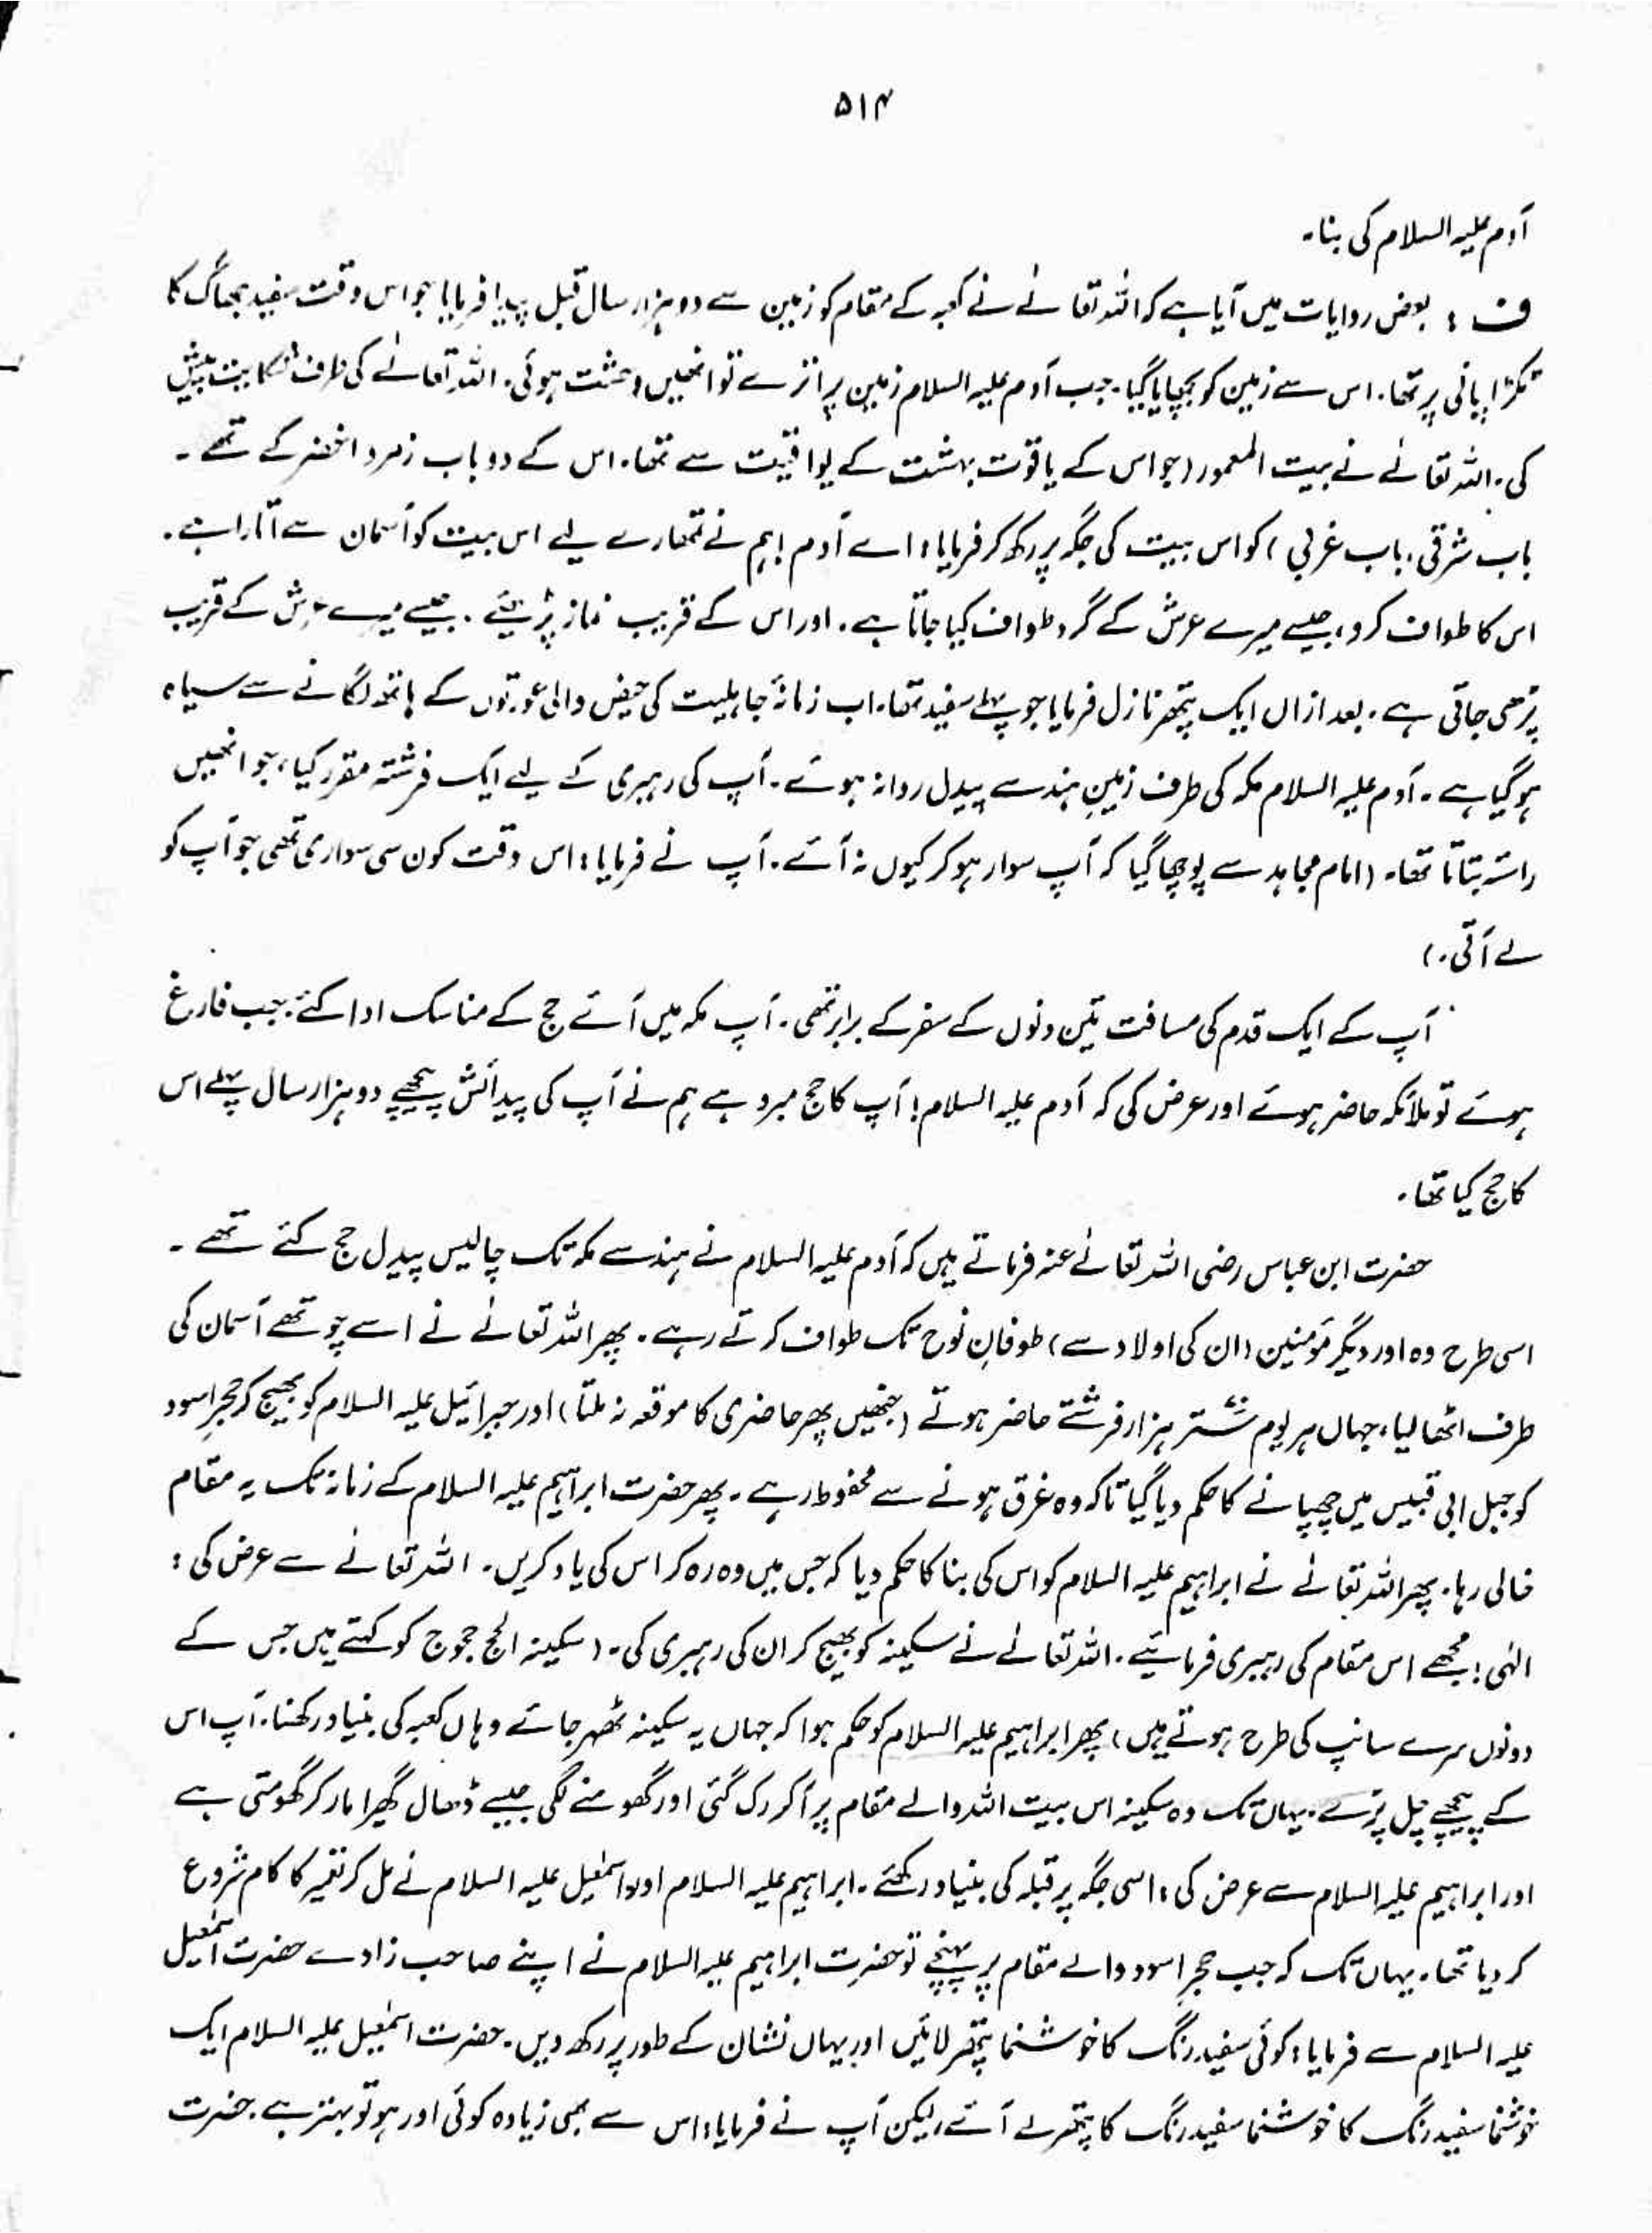 ۵۱۴
آدم علیہ السلام کی بنا۔
ف : بعض روایات میں آیا ہے کہ اللہ تعالٰے نے کعبہ کے مقام کو زمین سے دو ہزار سال قبل پیدا فرمایا جو اس وقت سفید جھاگ کا
ٹکڑا پانی پر تھا۔ اس سے زمین کو بچھایا گیا۔ جب آدم علیہ السلام زمین پر اترے تو انھیں وحشت ہوئی۔ اللہ تعالٰے کی طرف شکایت پیش
کی۔ اللہ تعالٰے نے بیت المعمور (جو اس کے یاقوت بہشت کے یواقیت سے تھا۔ اس کے دو باب زمرد اخضر کے تھے ۔
باب شرقی، باب غربی ) کو اس بیت کی جگہ پر رکھ کر فرمایا : اے آدم ! ہم نے تمھارے لیے اس بیت کو آسمان سے اتارا ہے۔
اس کا طواف کرو، جیسے میرے عرش کے گرد طواف کیا جاتا ہے۔ اور اس کے قریب نماز پڑھیئے ۔ جیسے میرے عرش کے قریب
پڑھی جاتی ہے۔ بعد ازاں ایک پتھر نازل فرمایا جو پہلے سفید تھا۔ اب زمانۂ جاہلیت کی حیض والی عورتوں کے ہاتھ لگانے سے سیاہ
ہو گیا ہے ۔ آدم علیہ السلام مکہ کی طرف زمینِ ہند سے پیدل روانہ ہوئے ۔ آپ کی رہبری کے لیے ایک فرشتہ مقرر کیا، جو انھیں
راستہ بتاتا تھا۔ (امام مجاہد سے پوچھا گیا کہ آپ سوار ہو کر کیوں نہ آئے۔ آپ نے فرمایا : اس وقت کون سی سواری تھی جو آپ کو
لے آتی۔)
آپ کے ایک قدم کی مسافت تین دنوں کے سفر کے برابر تھی۔ آپ مکہ میں آئے حج کے مناسک ادا کئے۔ جب فارغ
ہوئے تو ملائکہ حاضر ہوئے اور عرض کی کہ آدم علیہ السلام! آپ کا حج مبرو ہے ہم نے آپ کی پیدائش پیچھے دو ہزار سال پہلے اس
کا حج کیا تھا۔
حضرت ابن عباس رضی اللہ تعالٰے عنہ فرماتے ہیں کہ آدم علیہ السلام نے ہند سے مکہ تک چالیس پیدل حج کئے تھے ۔
اسی طرح وہ اور دیگر مؤمنین (ان کی اولاد سے) طوفانِ نوح تک طواف کرتے رہے۔ پھر اللہ تعالٰے نے اسے چوتھے آسمان کی
طرف اٹھا لیا، جہاں ہر یوم ستّر ہزار فرشتے حاضر ہوتے (جنھیں پھر حاضری کا موقعہ نہ ملتا) اور جبرائیل علیہ السلام کو بھیج کر حجرِ اسود
کو جبل ابی قبیس میں چھپانے کا حکم دیا گیا تاکہ وہ غرق ہونے سے محفوظ رہے ۔ پھر حضرت ابراہیم علیہ السلام کے زمانہ تک یہ مقام
خالی رہا۔ پھر اللہ تعالٰے نے ابراہیم علیہ السلام کو اس کی بنا کا حکم دیا کہ جس میں وہ رہ کر اس کی یاد کریں۔ اللہ تعالٰے سے عرض کی :
الٰہی! مجھے اس مقام کی رہبری فرمائیے۔ اللہ تعالٰے نے سکینہ کو بھیج کر ان کی رہبری کی۔ (سکینہ الحج حجوج کو کہتے ہیں جس کے
دونوں سرے سانپ کی طرح ہوتے ہیں) پھر ابراہیم علیہ السلام کو حکم ہوا کہ جہاں یہ سکینہ ٹھہر جائے وہاں کعبہ کی بنیاد رکھنا۔ آپ اس
کے پیچھے چل پڑے، یہاں تک وہ سکینہ اس بیت اللہ والے مقام پر آ کر رک گئی اور گھومنے لگی جیسے ڈھال گھیرا مار کر گھومتی ہے
اور ابراہیم علیہ السلام سے عرض کی : اسی جگہ پر قبلہ کی بنیاد رکھئے ۔ ابراہیم علیہ السلام اور اسمٰعیل علیہ السلام نے مل کر تعمیر کا کام شروع
کر دیا تھا۔ یہاں تک کہ جب حجرِ اسود والے مقام پر پہنچے تو حضرت ابراہیم علیہ السلام نے اپنے صاحب زادے حضرت اسمٰعیل
علیہ السلام سے فرمایا : کوئی سفید رنگ کا خوشنما پتھر لائیں اور یہاں نشان کے طور پر رکھ دیں۔ حضرت اسمٰعیل علیہ السلام ایک
خوشنما سفید رنگ کا خوشنما سفید رنگ کا پتھر لے آئے، لیکن آپ نے فرمایا : اس سے بھی زیادہ کوئی اور ہو تو بہتر ہے۔ حضرت